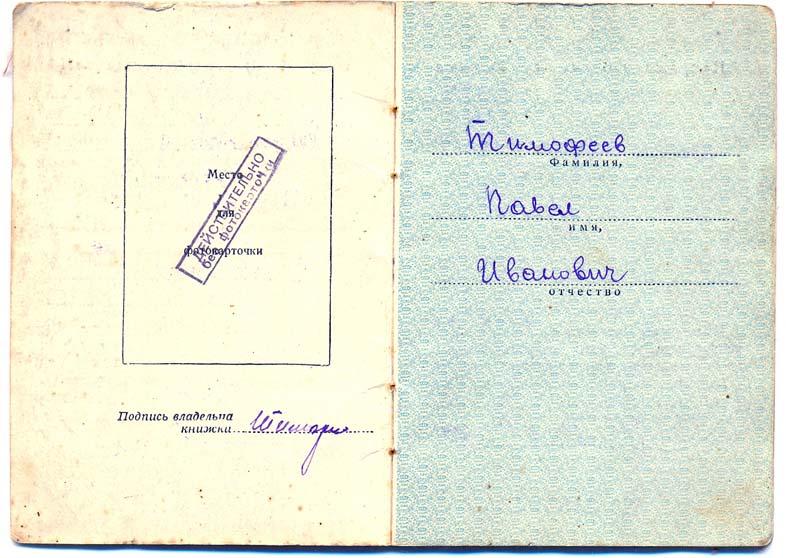 Место
для
фотокарточки
ДЕЙСТВИТЕЛЬНО
без фотокарточки
Подпись владельца
книжки
Тимофеев
Фамилия,
Павел
имя,
Иванович
отчество